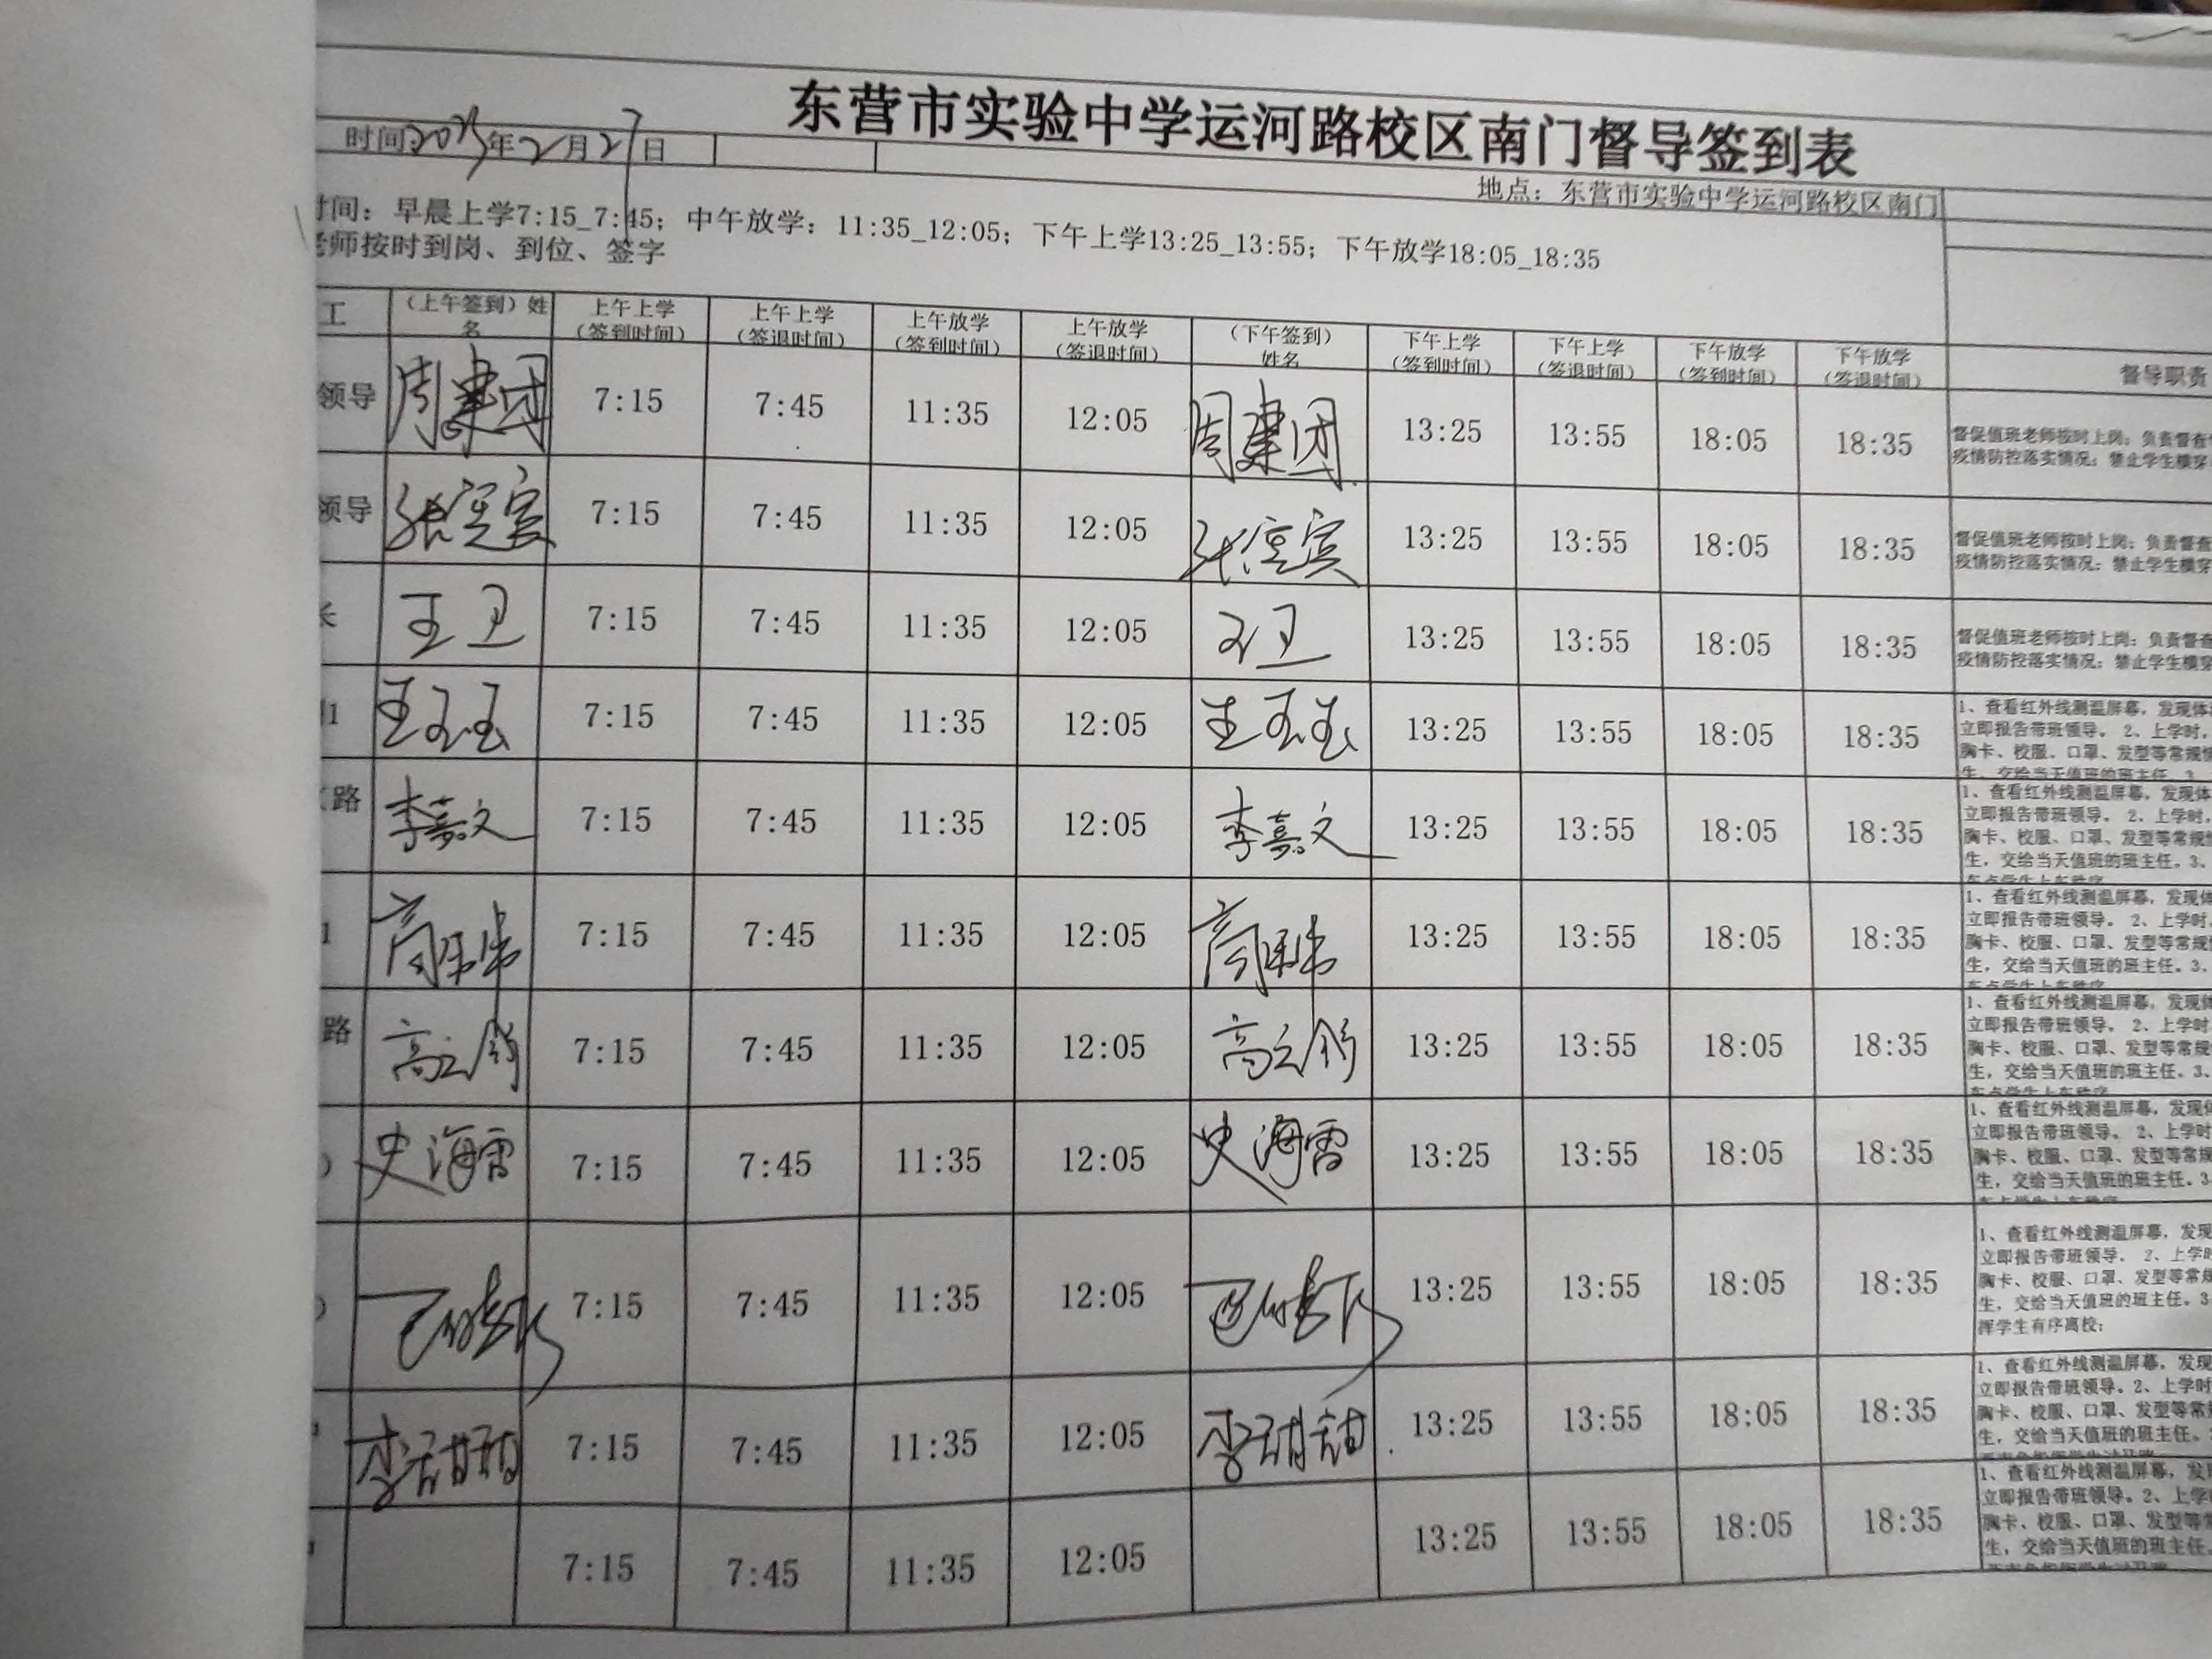 东营市实验中学运河路校区南门督导签到表
时间2023年2月27日
地点：东营市实验中学运河路校区南门
时间：早晨上学7:15_7:45；中午放学：11:35_12:05；下午上学13:25_13:55；下午放学18:05_18:35
老师按时到岗、到位、签字
工 （上午签到）姓名 上午上学（签到时间） 上午上学（签退时间） 上午放学（签到时间） 上午放学（签退时间） （下午签到）姓名 下午上学（签到时间） 下午上学（签退时间） 下午放学（签到时间） 下午放学（签退时间） 督导职责
领导 周建团 7:15 7:45 11:35 12:05 周建团 13:25 13:55 18:05 18:35 督促值班老师按时上岗；负责督查
疫情防控落实情况；禁止学生横穿
领导 7:15 7:45 11:35 12:05 13:25 13:55 18:05 18:35 督促值班老师按时上岗；负责督查
疫情防控落实情况；禁止学生横穿
长 王卫 7:15 7:45 11:35 12:05 王卫 13:25 13:55 18:05 18:35 督促值班老师按时上岗；负责督查
疫情防控落实情况；禁止学生横穿
1 王玉玉 7:15 7:45 11:35 12:05 王玉玉 13:25 13:55 18:05 18:35 1、查看红外线测温屏幕，发现体
立即报告带班领导。 2、上学时，
胸卡、校服、口罩、发型等常规
生，交给当天值班的班主任。3、
路 李嘉文 7:15 7:45 11:35 12:05 李嘉文 13:25 13:55 18:05 18:35 1、查看红外线测温屏幕，发现体
立即报告带班领导。 2、上学时，
胸卡、校服、口罩、发型等常规
生，交给当天值班的班主任。3、
车点学生上车秩序
1 7:15 7:45 11:35 12:05 13:25 13:55 18:05 18:35 1、查看红外线测温屏幕，发现体
立即报告带班领导。 2、上学时，
胸卡、校服、口罩、发型等常规
生，交给当天值班的班主任。3、
车点学生上车秩序
路 高云舒 7:15 7:45 11:35 12:05 高云舒 13:25 13:55 18:05 18:35 1、查看红外线测温屏幕，发现体
立即报告带班领导。 2、上学时
胸卡、校服、口罩、发型等常规
生，交给当天值班的班主任。3、
车点学生上车秩序
） 史海雷 7:15 7:45 11:35 12:05 史海雷 13:25 13:55 18:05 18:35 1、查看红外线测温屏幕，发现
立即报告带班领导。 2、上学时
胸卡、校服、口罩、发型等常规
生，交给当天值班的班主任。3
车点学生上车秩序
） 7:15 7:45 11:35 12:05 13:25 13:55 18:05 18:35 1、查看红外线测温屏幕，发现
立即报告带班领导。 2、上学时
胸卡、校服、口罩、发型等常规
生，交给当天值班的班主任。3
挥学生有序离校；
李甜甜 7:15 7:45 11:35 12:05 李甜甜 13:25 13:55 18:05 18:35 1、查看红外线测温屏幕，发现
立即报告带班领导。2、上学时
胸卡、校服、口罩、发型等常规
生，交给当天值班的班主任。
7:15 7:45 11:35 12:05 13:25 13:55 18:05 18:35 1、查看红外线测温屏幕，发现
立即报告带班领导。2、上学时
胸卡、校服、口罩、发型等常
生，交给当天值班的班主任。